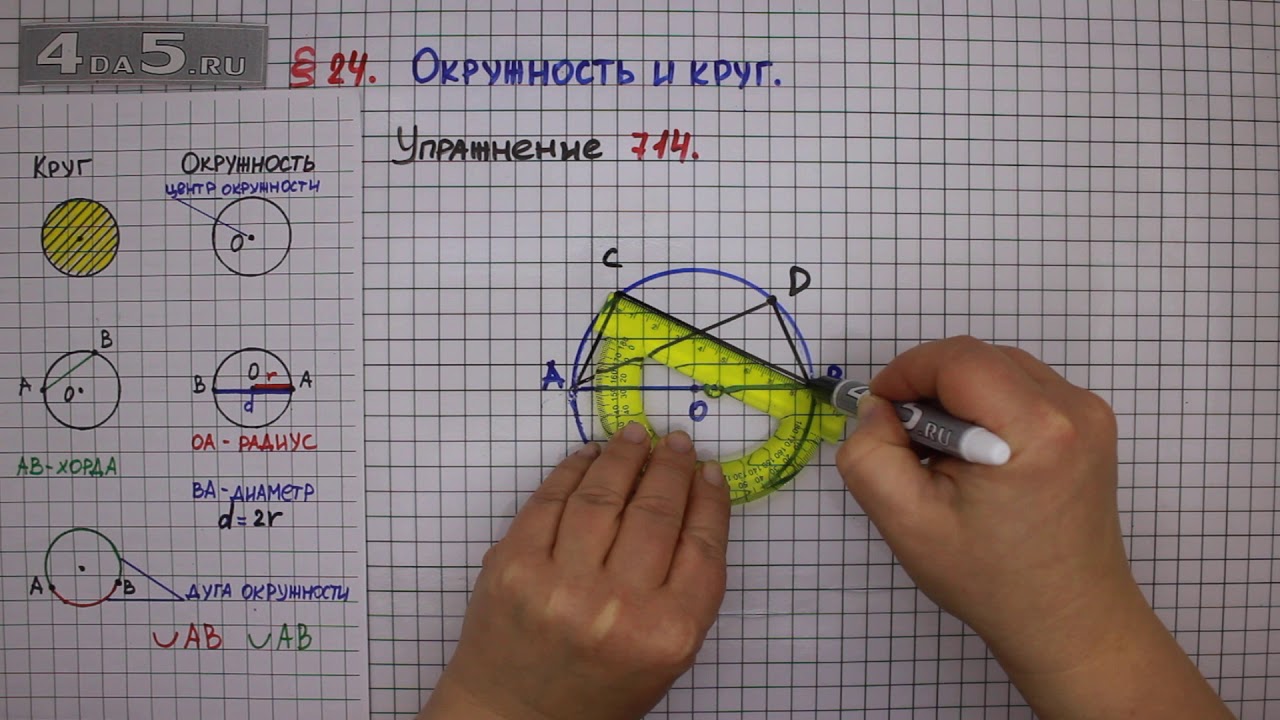 4DA5.RU
§ 24. Окружность и круг.
Упражнение 714.
Круг
Окружность
центр окружности
O
A
B
O
B
O
r
A
d
OA - РАДИУС
AB-ХОРДА
BA-ДИАМЕТР
d=2r
A
B
ДУГА ОКРУЖНОСТИ
∪AB ∪AB
C
D
A
O